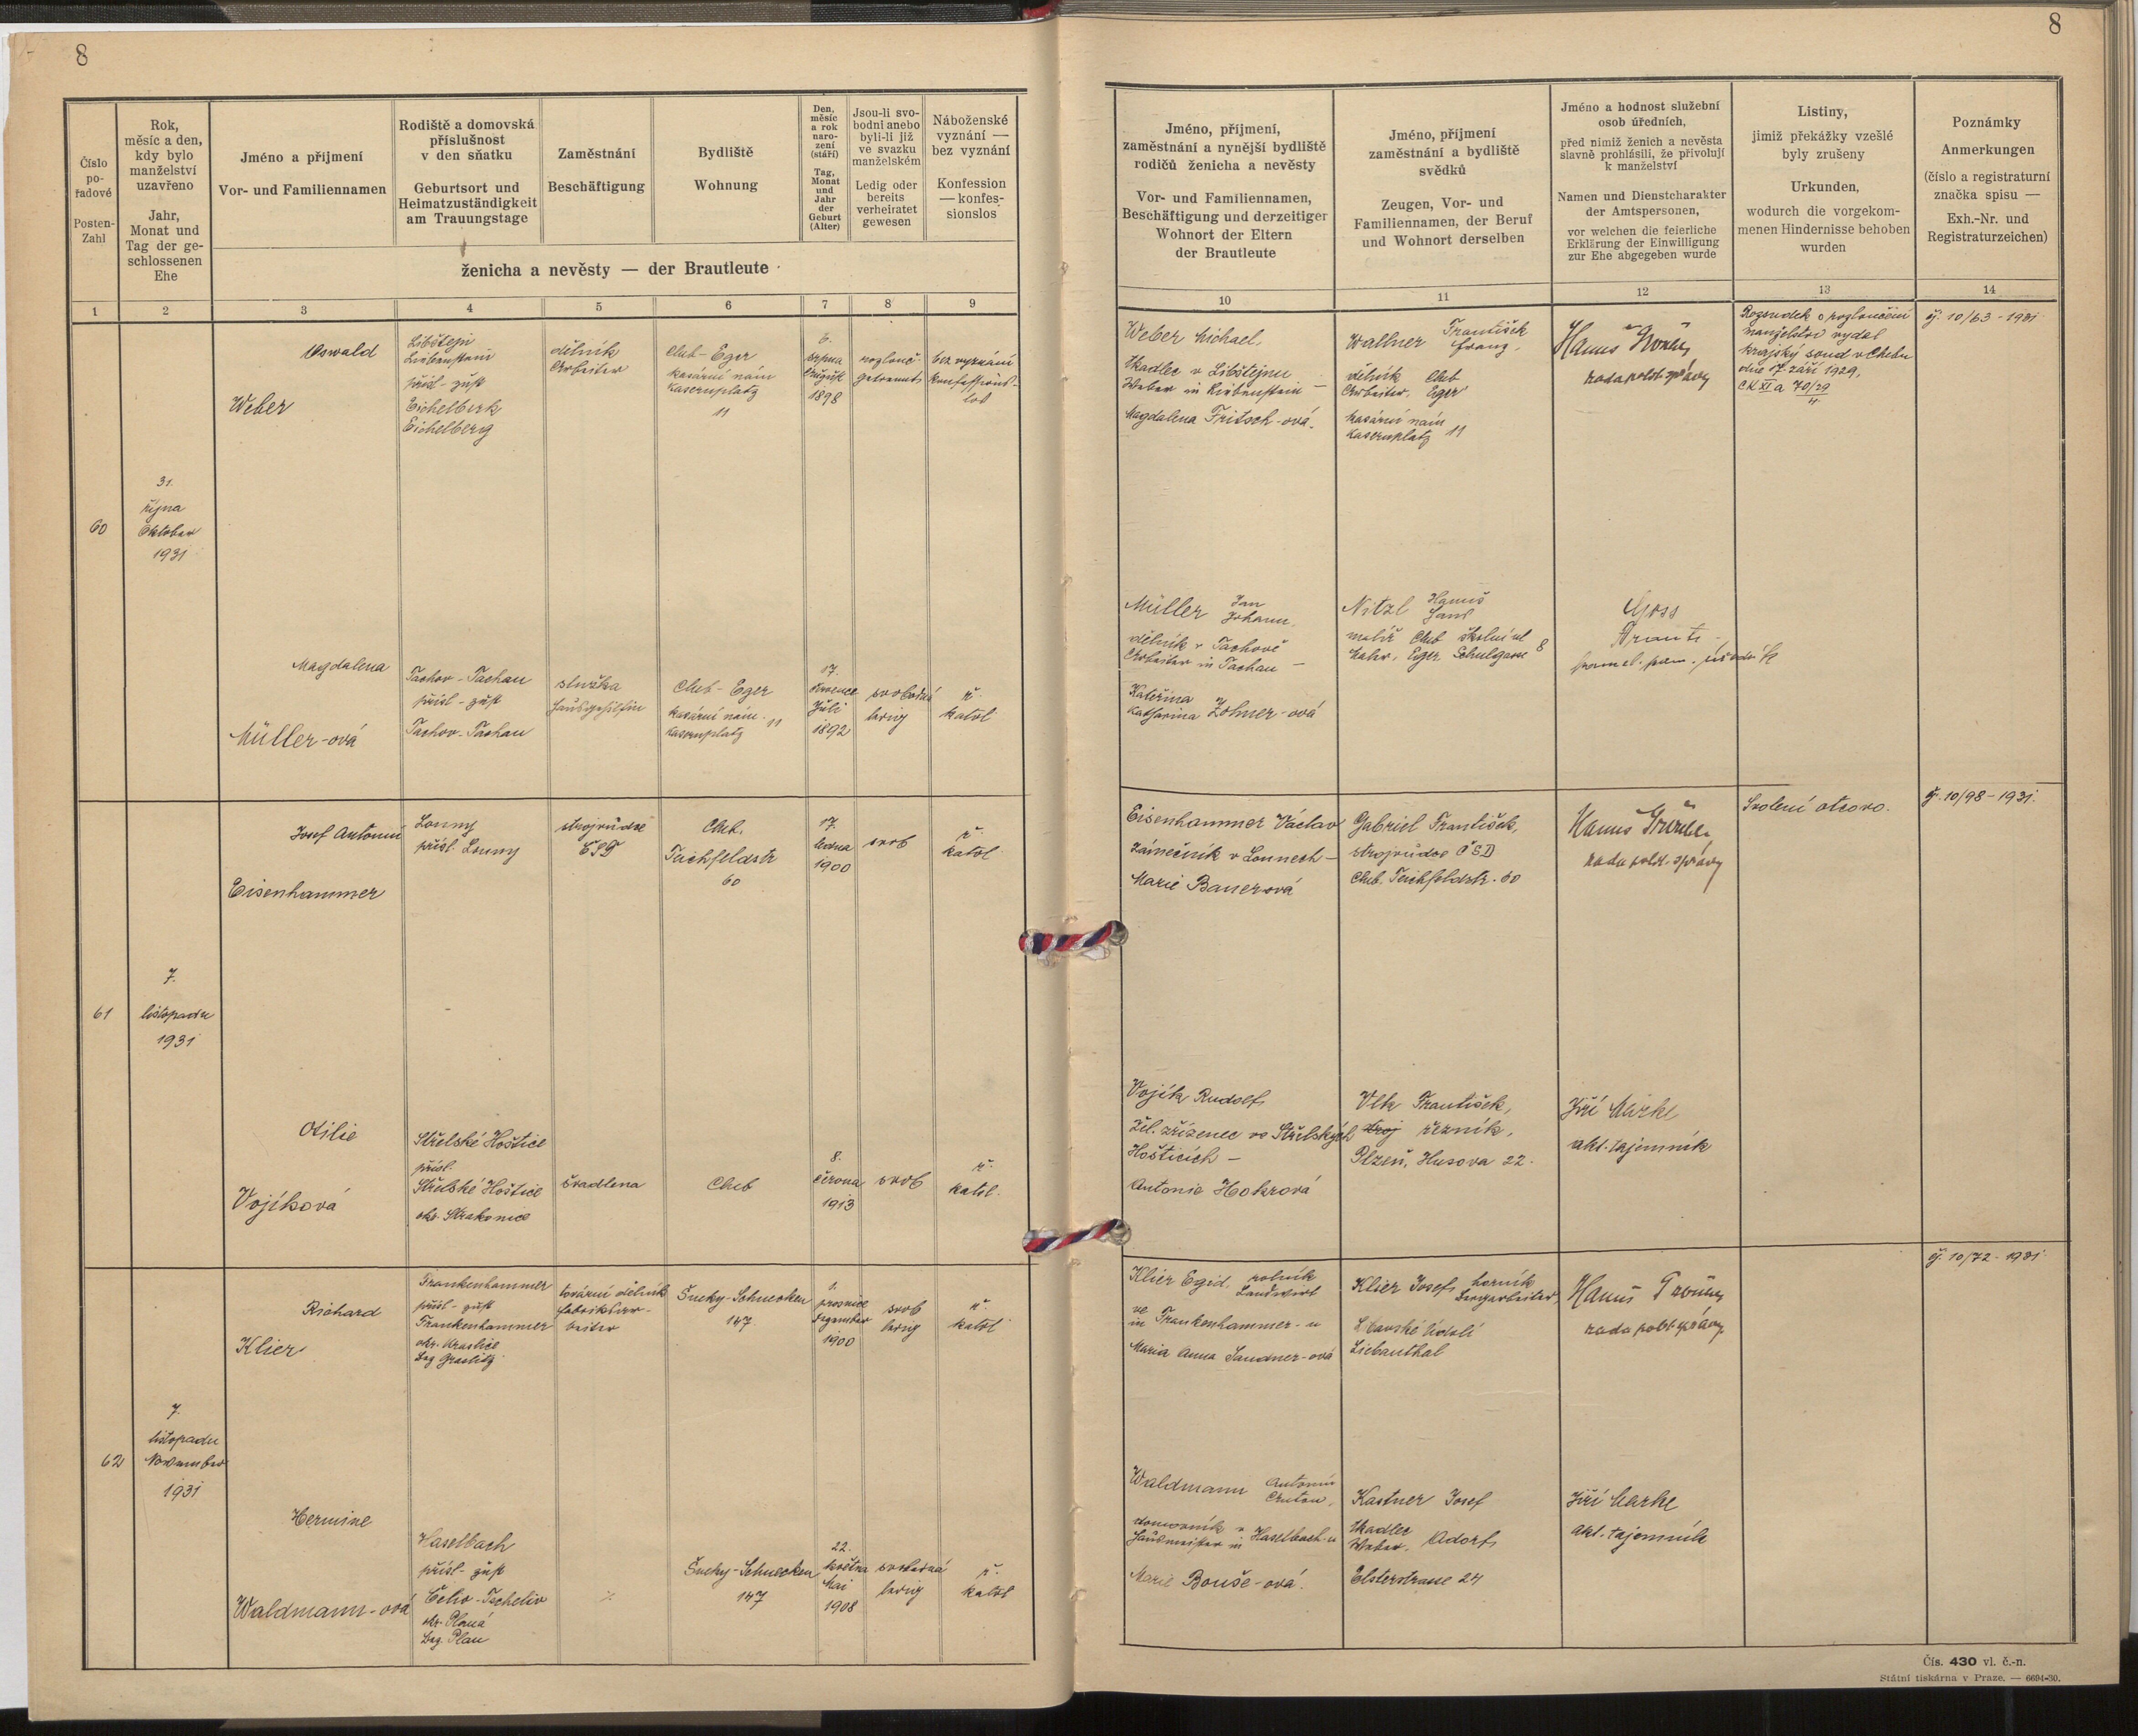 8
8
Číslo
po-
řadové
Posten-
Zahl
Rok,
měsíc a den,
kdy bylo
manželství
uzavřeno
Jahr,
Monat und
Tag der ge-
schlossenen
Ehe
Jméno a příjmení
Vor- und Familiennamen
Rodiště a domovská
příslušnost
v den sňatku
Geburtsort und
Heimatzuständigkeit
am Trauungstage
Zaměstnání
Beschäftigung
Bydliště
Wohnung
Den,
měsíc
a rok
naro-
zení
(stáří)
Tag,
Monat
und
Jahr
der
Geburt
(Alter)
Jsou-li svo-
bodni anebo
byli-li již
ve svazku
manželském
Ledig oder
bereits
verheiratet
gewesen
Náboženské
vyznání —
bez vyznání
Konfession
— konfes-
sionslos
ženicha a nevěsty — der Brautleute
Jméno, příjmení,
zaměstnání a nynější bydliště
rodičů ženicha a nevěsty
Vor- und Familiennamen,
Beschäftigung und derzeitiger
Wohnort der Eltern
der Brautleute
Jméno, příjmení
zaměstnání a bydliště
svědků
Zeugen, Vor- und
Familiennamen, der Beruf
und Wohnort derselben
Jméno a hodnost služební
osob úředních,
před nimiž ženich a nevěsta
slavně prohlásili, že přivolují
k manželství
Namen und Dienstcharakter
der Amtspersonen,
vor welchen die feierliche
Erklärung der Einwilligung
zur Ehe abgegeben wurde
Listiny,
jimiž překážky vzešlé
byly zrušeny
Urkunden,
wodurch die vorgekom-
menen Hindernisse behoben
wurden
Poznámky
Anmerkungen
(číslo a registraturní
značka spisu —
Exh.-Nr. und
Registraturzeichen)
1 2 3 4 5 6 7 8 9 10 11 12 13 14
60
31.
října
Oktober
1931
Oswald
Weber
Libštejn
Liebenstein
přísl - zust
Eichelberk
Eichelberg
dělník
Arbeiter
Cheb - Eger
kasární nám
Kasernplatz
11
6.
srpna
August
1898
rozlouč.
getrennt
bez vyznání
konfessions-
los
Weber Michael,
tkadlec v Libštejnu
Weber in Liebenstein —
Magdalena Fritsch-ová.
Wallner František
Franz.
dělník Cheb
Arbeiter, Eger
kasární nám
Kasernplatz 11
Hanuš
rada polit. správy
Rozsudek o rozloučení
manželství vydal
krajský soud v Chebu
dne 17. září 1929,
Ck XI a 70/29
4.
čj. 10/63 - 1931
Magdalena
Müller-ová
Tachov - Tachau
přísl - zust
Tachov - Tachau
služka
Hausgehilfin
Cheb - Eger
kasární nám. 11
Kasernplatz
17.
července
Juli
1892
svobodná
ledig
ř.
katol
Müller Jan
Johann.
dělník v Tachově
Arbeiter in Tachau —
Kateřina
Katharina Zohner-ová
Nitzl Hanuš
Hans
malíř Cheb školní ul 8
Maler, Eger Schulgasse
Goss
61
7.
listopadu
1931
Josef Antonín
Eisenhammer
Louny
přísl. Louny
strojvůdce
ČSD
Cheb.
Teichfeldstr
60
17.
ledna
1900
svob
ř.
katol
Eisenhammer Václav
zámečník v Lounech —
Marie Bauerová
Gabriel František,
strojvůdce ČSD
Cheb. Teichfeldstr. 60
Hanuš
rada polit. správy
Svolení otcovo.
čj. 10/98 - 1931.
Otilie
Vojíková
Střelské Hoštice
přísl.
Střelské Hoštice
okr. Strakonice
švadlena
Cheb
8.
června
1913
svob
ř.
katol.
Vojík Rudolf,
žel. zřízenec ve Střelských
Hošticích —
Antonie Hokrová
Vlk František,
stroj řezník,
Plzeň, Husova 22.
Jiří Märkl
akt. tajemník
62
7.
listopadu
November
1931
Richard
Klier
Frankenhammer
přísl - zust
Frankenhammer
okr. Kraslice
Bez Graslitz
tovární dělník
Fabriksar-
beiter
Šneky - Schnecken
147
1.
prosince
Dezember
1900
svob
ledig
ř.
katol
Klier Egid, rolník
Landwirt
ve
in Frankenhammer - u
Maria Anna Sandner-ová
Klier Josef, horník
Bergarbeiter,
Libavské Údolí
Liebauthal
Hanuš
rada polit. správy
čj. 10/72 - 1931.
Hermine
Waldmann-ová
Haselbach
přísl - zust
Čeliv - Tscheliv
okr. Planá
Bez. Plan
Šneky - Schnecken
147
22.
května
Mai
1908
svobodná
ledig
ř.
katol
Waldmann Antonín
Anton,
domovník v
Hausmeister in Haselbach - u
Marie Bouše-ová.
Kastner Josef
tkadlec
Weber, Adorf,
Elsterstrasse 24
Jiří Märkl
akt. tajemník
Čís. 430 vl. č.-n.
Státní tiskárna v Praze. — 6694-30.